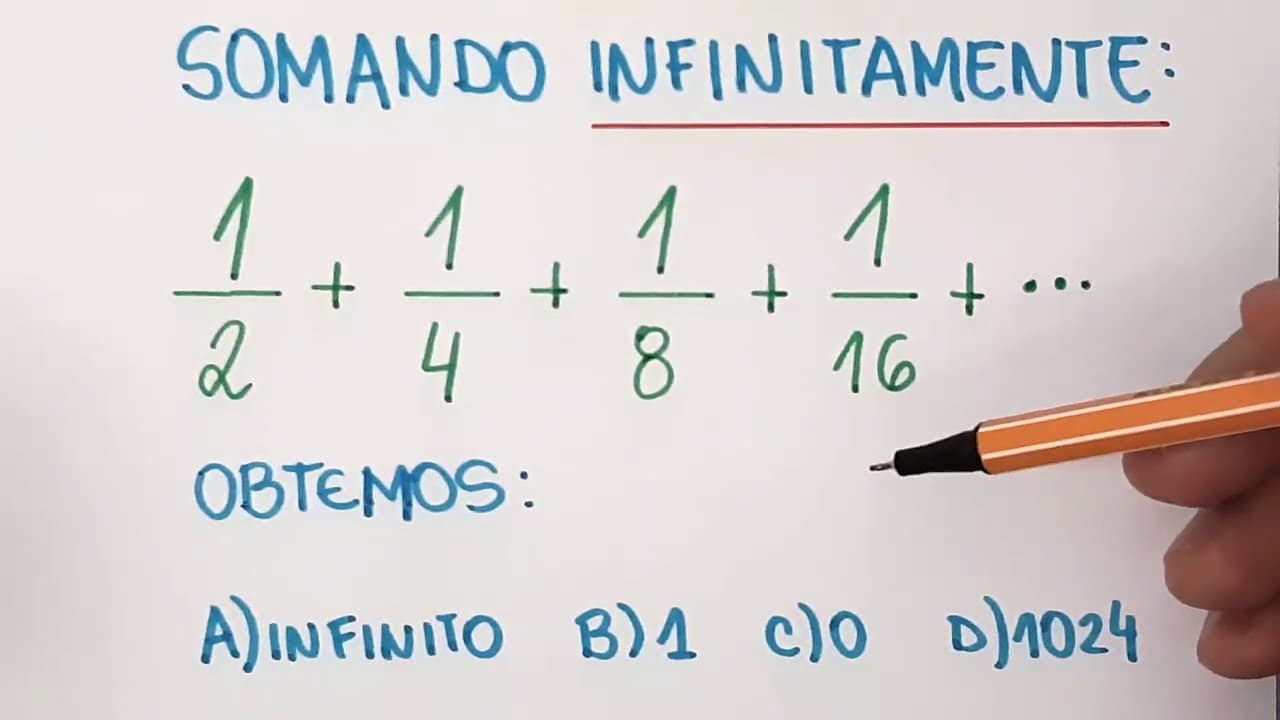 SOMANDO INFINITAMENTE:
1/2 + 1/4 + 1/8 + 1/16 + ...
OBTEMOS:
A) INFINITO B) 1 C) 0 D) 1024